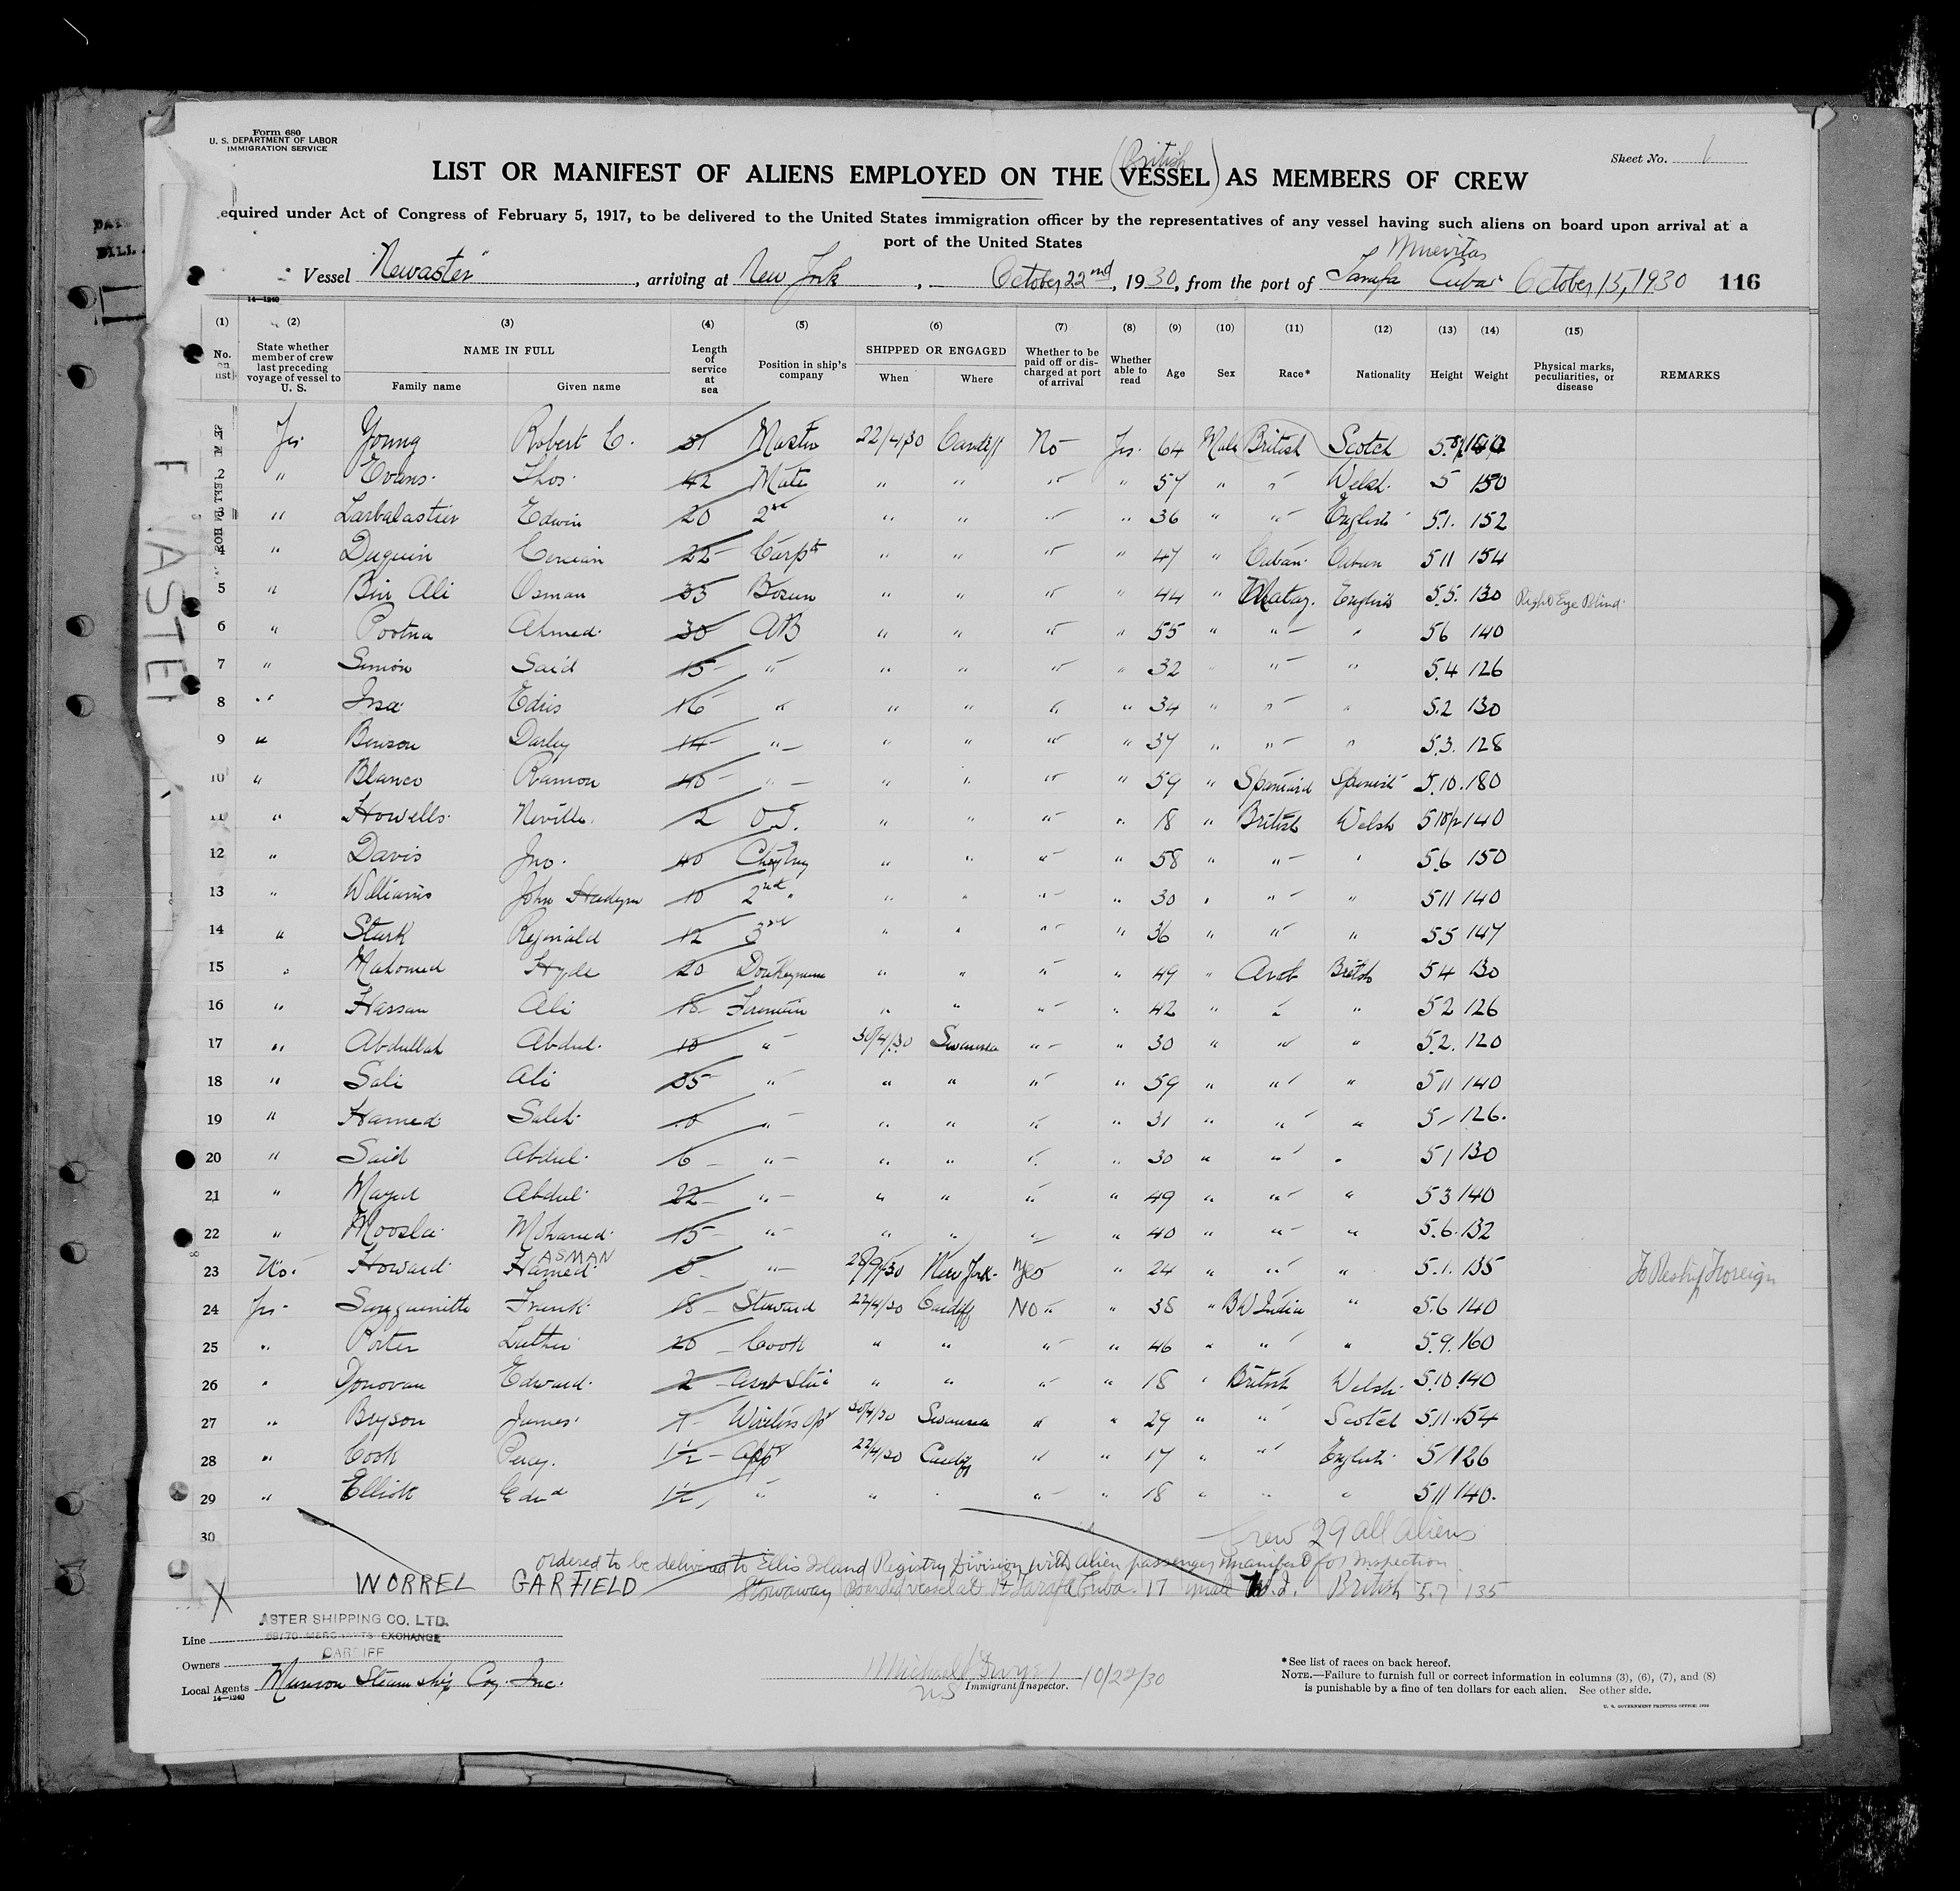 Form 680
U. S. DEPARTMENT OF LABOR
IMMIGRATION SERVICE
Sheet No. 1
(British)
LIST OR MANIFEST OF ALIENS EMPLOYED ON THE VESSEL AS MEMBERS OF CREW
equired under Act of Congress of February 5, 1917, to be delivered to the United States immigration officer by the representatives of any vessel having such aliens on board upon arrival at a
port of the United States
Vessel "Newaster", arriving at New York, October 22nd, 1930, from the port of Tarafa Cuba October 15, 1930 116
14—1240
(1) (2) (3) (4) (5) (6) (7) (8) (9) (10) (11) (12) (13) (14) (15)
No. on list State whether member of crew last preceding voyage of vessel to U. S. NAME IN FULL Family name Given name Length of service at sea Position in ship's company SHIPPED OR ENGAGED When Where Whether to be paid off or discharged at port of arrival Whether able to read Age Sex Race* Nationality Height Weight Physical marks, peculiarities, or disease REMARKS
Yes Young Robert C. 51 Master 22/4/30 Cardiff No Yes 64 Male British Scotch
2 " Evans Thos. 42 Mate " " " " 57 " " Welsh 5 150
" Larbalastier Edwin 20 2nd " " " " 36 " " English 5.1. 152
4 " Duguin 22 Carptr " " " " 47 " Cuban Cuban 5 11 154
5 " Bin Ali Osman 35 Bosun " " " " 44 " Malay. English 5.5. 130 Right Eye Blind
6 " Pootna Ahmed 30 AB " " " " 55 " " " 5 6 140
7 " Simon Said 15 " " " " " 32 " " " 5.4 126
8 " Insa Edris 16 " " " " " 34 " " " 5.2 130
9 " Benson Darley 14 " " " " " 37 " " " 5.3. 128
10 " Blanco Ramon 40 " " " " " 59 " Spaniard Spanish 5.10. 180
11 " Howells Neville 2 O.S. " " " " 18 " British Welsh 5 10½ 140
12 " Davis Jno. 40 " " " " 58 " " " 5.6 150
13 " Williams John 10 2nd " " " " " 30 " " " 5 11 140
14 " Stark Reginald 12 3rd " " " " 36 " " " 5 5 147
15 " Mahomed Hyde 20 Donkeyman " " " " 49 " Arab British 5 4 130
16 " Hassan Ali 18 Fireman " " " " 42 " " " 5 2 126
17 " Abdullah Abdul 10 " 30/4/30 Swansea " " 30 " " " 5.2. 120
18 " Sali Ali 35 " " " " " 59 " " " 5 11 140
19 " Hamed Saleh " " " " " 31 " " " 5 126.
20 " Said Abdul 6 " " " " " 30 " " " 5 1 130
21 " Abdul 22 " " " " " 49 " " " 5 3 140
22 " Moosla Mohamed 15 " " " " " 40 " " " 5.6. 132
23 No. Howard Hamed ASMAN 5 " 28/9/30 New York Yes " 24 " " " 5.1. 135 To Reship Foreign
24 Yes Frank 18 Steward 22/4/30 Cardiff No " 38 " B W India " 5.6 140
25 " Porter Luther 20 Cook " " " " 46 " " " 5.9. 160
26 " Donovan Edward 2 " " " " 18 " British Welsh 5.10. 140
27 " Bryson James 7 Wireless Opr 30/4/30 Swansea " " 29 " " Scotch 5.11. 154
28 " Cook Percy. 1½ App 22/4/30 Cardiff " " 17 " " English 5 126
29 " Elliott Edwd 1½ " " " " " 18 " " " 5 11 140.
30 Crew 29 all Aliens
ordered to be delivered to Ellis Island Registry Division with alien passenger manifest for inspection
X WORREL GARFIELD Stowaway boarded vessel at Pt Tarafa Cuba. 17 male W.I. British 5.7 135
ASTER SHIPPING CO. LTD.
Line 68/70 MERCHANTS EXCHANGE
CARDIFF
Owners
Local Agents Munson Steam ship Coy. Inc.
14—1240
Michael Dwyer 10/22/30
US Immigrant Inspector.
*See list of races on back hereof.
NOTE.—Failure to furnish full or correct information in columns (3), (6), (7), and (8)
is punishable by a fine of ten dollars for each alien. See other side.